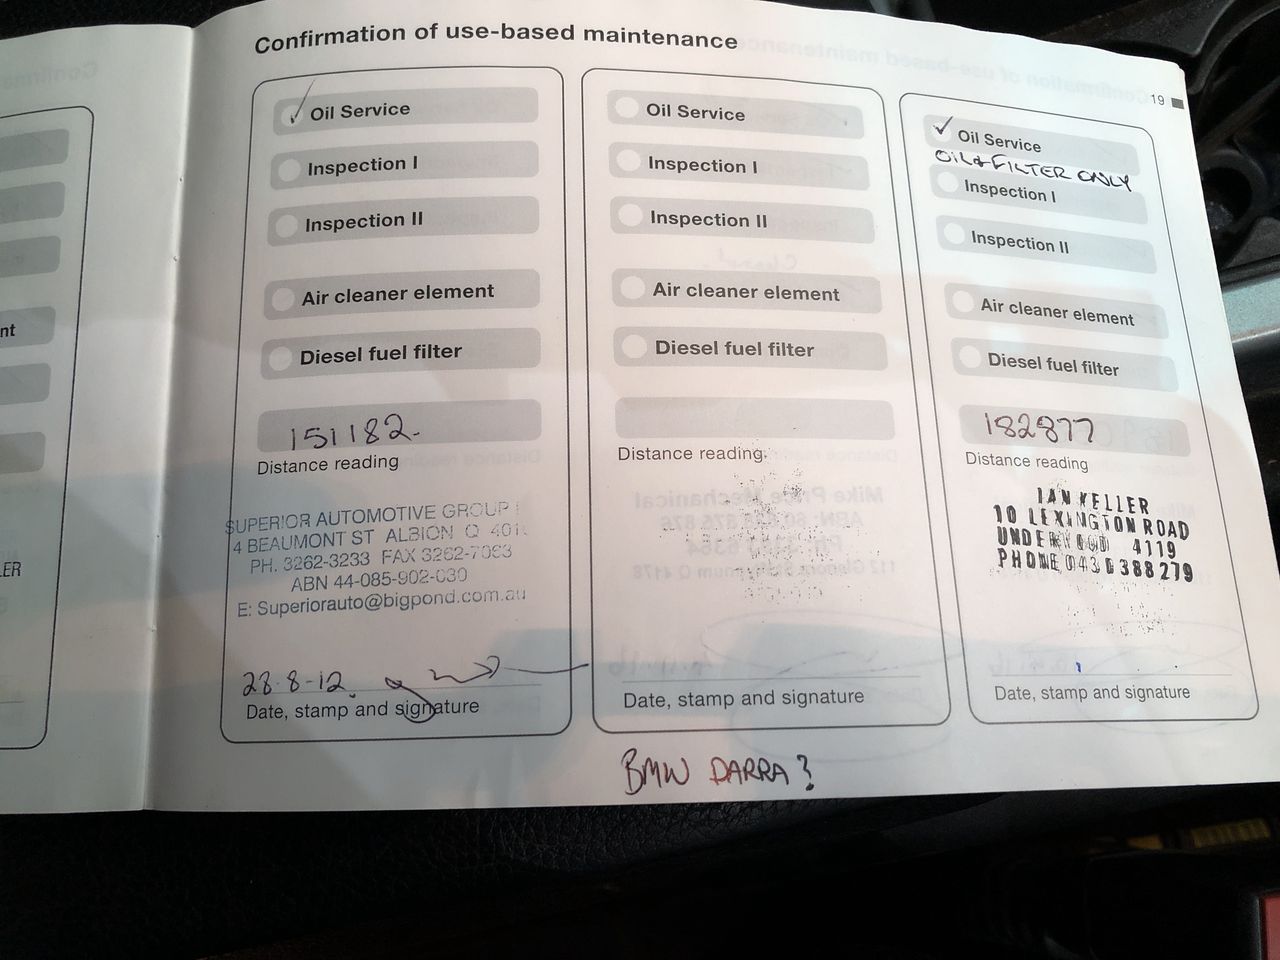 Confirmation of use-based maintenance
19
Oil Service
Inspection I
Inspection II
Air cleaner element
Diesel fuel filter
151182.
Distance reading
SUPERIOR AUTOMOTIVE GROUP
4 BEAUMONT ST ALBION Q 401
PH. 3262-3233 FAX 3262-7063
ABN 44-085-902-030
E: Superiorauto@bigpond.com.au
28-8-12.
Date, stamp and signature
Oil Service
Inspection I
Inspection II
Air cleaner element
Diesel fuel filter
Distance reading
Date, stamp and signature
BMW DARRA?
Oil Service
OIL & FILTER ONLY
Inspection I
Inspection II
Air cleaner element
Diesel fuel filter
182877
Distance reading
IAN KELLER
10 LEXINGTON ROAD
UNDERWOOD 4119
PHONE 0430388279
Date, stamp and signature
nt
LER